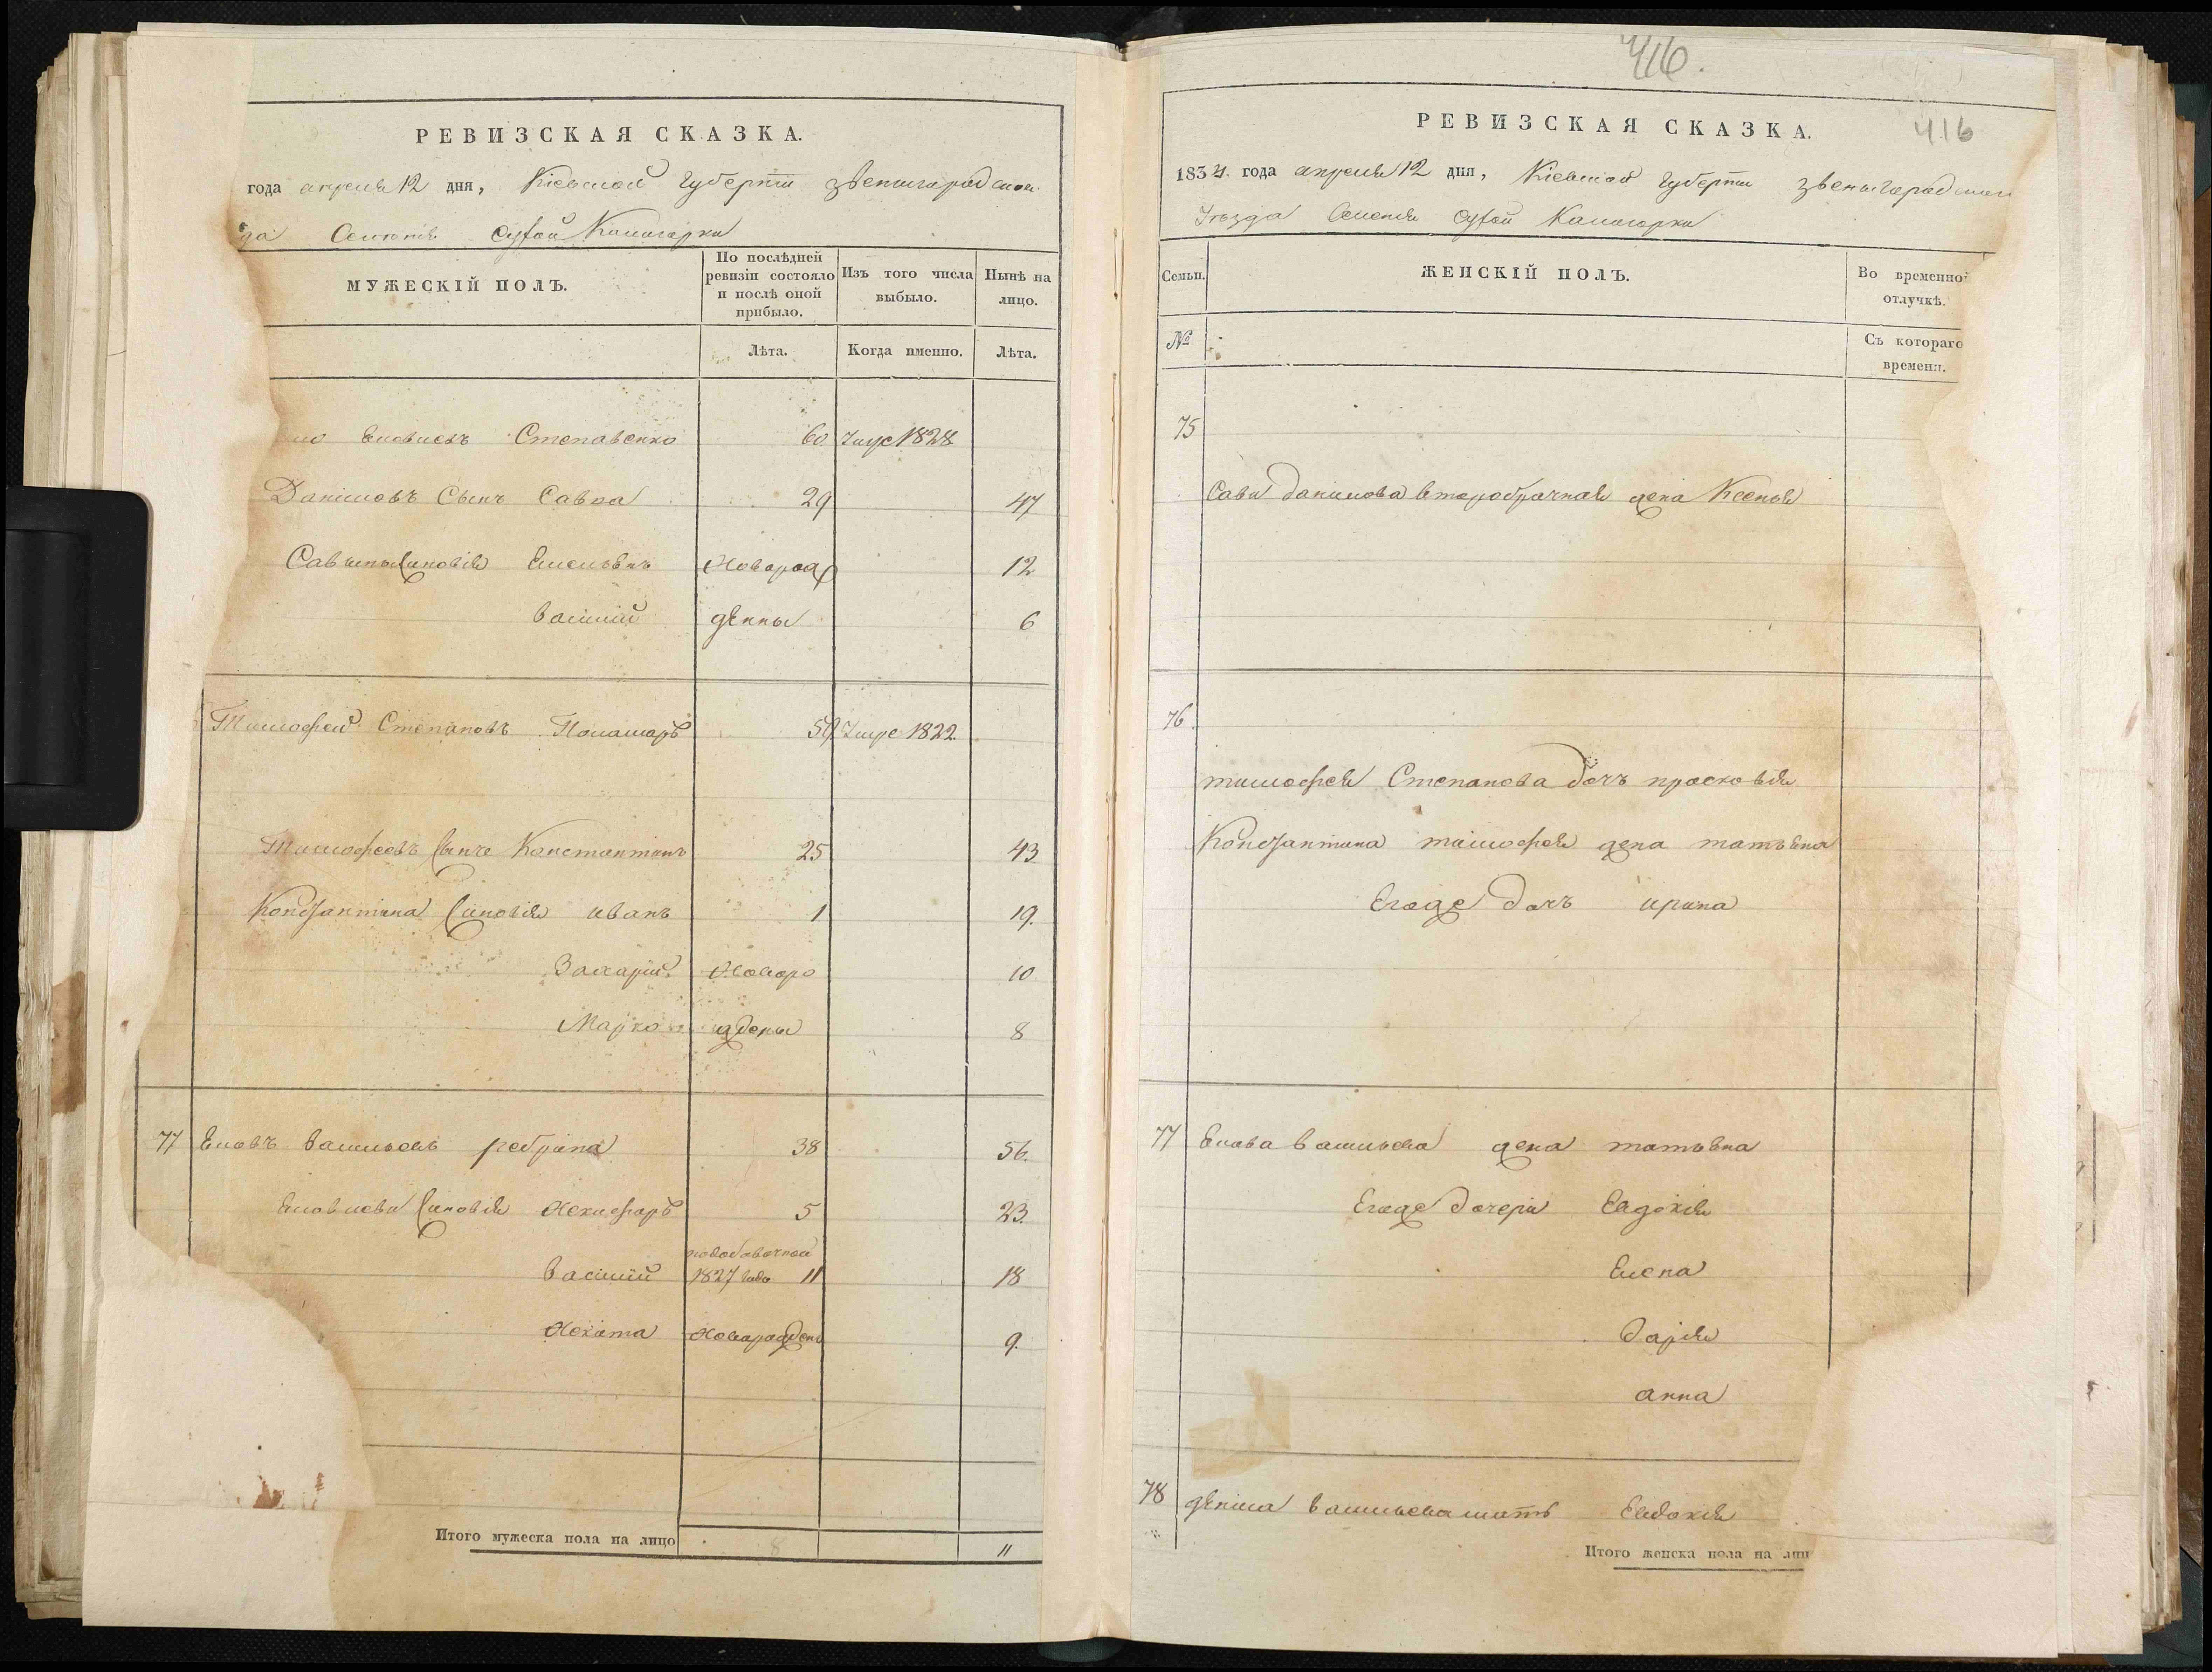 416.
РЕВИЗСКАЯ СКАЗКА.
года апреля 12 дня, Кіевской Губерніи звенигородскои
да Селенія Сухой Калигорки
МУЖЕСКІЙ ПОЛЪ.
По послѣдней ревизіи состояло и послѣ оной прибыло.
Изъ того числа выбыло.
Нынѣ на лицо.
Лѣта.
Когда именно.
Лѣта.
Степавенко 60 1828
Данииловъ Сынъ Савка 29 47
Савины Синовія Новорож 12
Василій денны 6
Тимофей Степановъ Понамарь 59 1822.
Тимофеевъ Сынъ Константинъ 25 43
Константина Синовія иванъ 1 19.
Захарій Новоро 10
Марко ждены 8
77 Васильевъ 38 56.
Синовія Некифоръ 5 23.
Василій 1827 года 11 18
Некита Новорожден 9.
Итого мужеска пола на лицо 8 11
РЕВИЗСКАЯ СКАЗКА.
416
1834. года апреля 12 дня, Кіевской Губерніи звенигородскои
Уезда Селенія Сухой Калигорки
Семьи.
ЖЕНСКІЙ ПОЛЪ.
Во временной отлучкѣ.
№
Съ котораго времени.
75
Сави данилова второбрачная жена Ксенья
76.
тимофея Степанова дочъ прасковія
Константина тимофея жена татьяна
Егоже дочъ ирина
77 Васильева жена татьяна
Егоже дочери Евдокія
Елена
дарія
анна
78 Васильева мать Евдокія
Итого женска пола на лиц